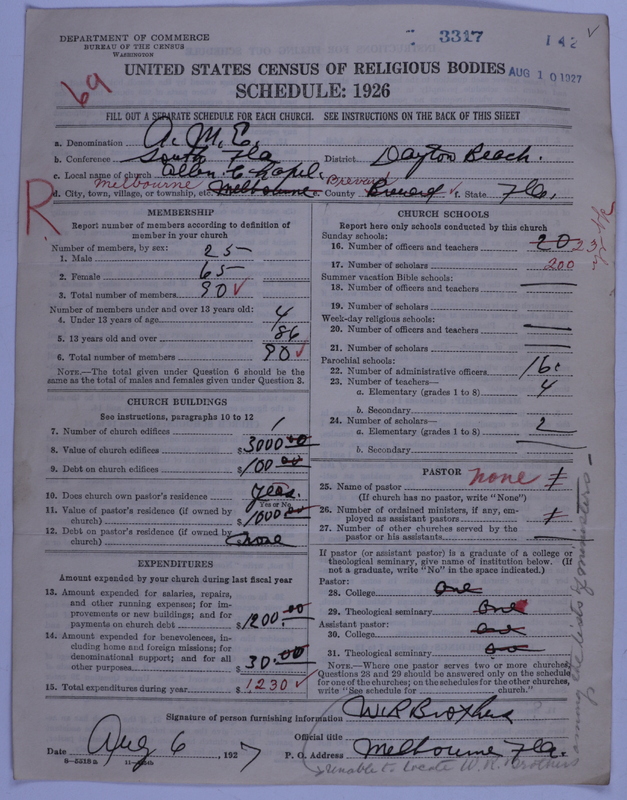 DEPARTMENT OF COMMERCE
BUREAU OF THE CENSUS
WASHINGTON
3317
142
AUG 10 1927
69
UNITED STATES CENSUS OF RELIGIOUS BODIES
SCHEDULE: 1926
FILL OUT A SEPARATE SCHEDULE FOR EACH CHURCH. SEE INSTRUCTIONS ON THE BACK OF THIS SHEET
a. Denomination A. M. E.
b. Conference South Fla District Dayton Beach.
c. Local name of church Allen C. Chapel.
Melbourne Brevard
d. City, town, village, or township, etc. Melbourne e. County Brevard f. State Fla.
R
MEMBERSHIP
Report number of members according to definition of
member in your church
Number of members, by sex:
1. Male 25
2. Female 65
3. Total number of members 90 ✓
Number of members under and over 13 years old:
4. Under 13 years of age 4
5. 13 years old and over 86
6. Total number of members 90 ✓
NOTE.—The total given under Question 6 should be the
same as the total of males and females given under Question 3.
CHURCH BUILDINGS
See instructions, paragraphs 10 to 12
7. Number of church edifices 1
8. Value of church edifices $3000.00
9. Debt on church edifices $100.00
10. Does church own pastor's residence? Yes.
Yes or No
11. Value of pastor's residence (if owned by
church) $1000.00
12. Debt on pastor's residence (if owned by
church) $none
EXPENDITURES
Amount expended by your church during last fiscal year
13. Amount expended for salaries, repairs,
and other running expenses; for im-
provements or new buildings; and for
payments on church debt $1200.00
14. Amount expended for benevolences, in-
cluding home and foreign missions; for
denominational support; and for all
other purposes $30.00
15. Total expenditures during year $1230 ✓
CHURCH SCHOOLS
Report here only schools conducted by this church
Sunday schools:
16. Number of officers and teachers 20 23
17. Number of scholars 200
Summer vacation Bible schools:
18. Number of officers and teachers
19. Number of scholars
Week-day religious schools:
20. Number of officers and teachers
21. Number of scholars
Parochial schools:
22. Number of administrative officers 16
23. Number of teachers—
a. Elementary (grades 1 to 8) 4
b. Secondary
24. Number of scholars—
a. Elementary (grades 1 to 8) 2
b. Secondary
PASTOR
25. Name of pastor none
(If church has no pastor, write "None")
26. Number of ordained ministers, if any, em-
ployed as assistant pastors
27. Number of other churches served by the
pastor or his assistants
If pastor (or assistant pastor) is a graduate of a college or
theological seminary, give name of institution below. (If
not a graduate, write "No" in the space indicated.)
Pastor:
28. College One
29. Theological seminary One
Assistant pastor:
30. College One
31. Theological seminary One
NOTE.—Where one pastor serves two or more churches,
Questions 28 and 29 should be answered only on the schedule
for one of the churches; on the schedules for the other churches,
write "See schedule for church."
Signature of person furnishing information W R Brothers
Official title
Date Aug 6, 1927 P. O. Address Melbourne Fla.
unable to locate W. R. Brothers
among the lists of ministers—